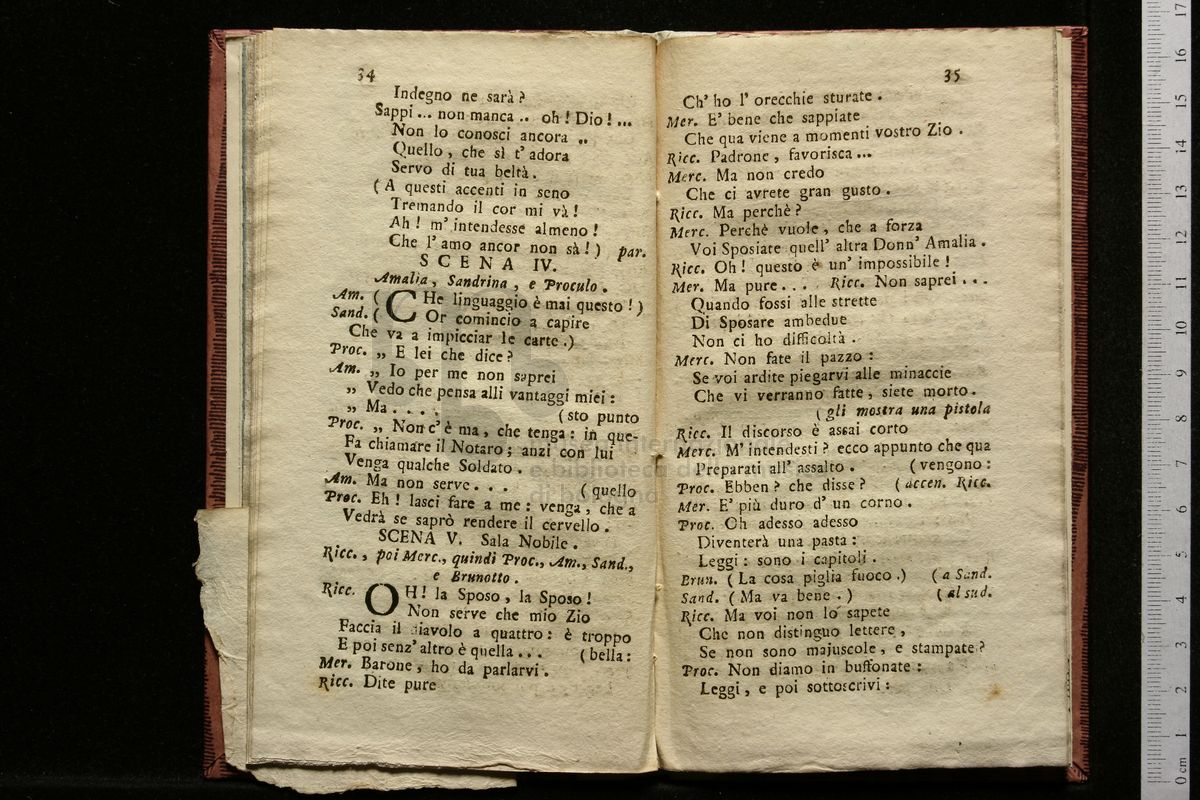 34
Indegno ne sarà ?
Sappi ... non manca .. oh ! Dio ! ...
Non lo conosci ancora ..
Quello , che sì t' adora
Servo di tua beltà .
( A questi accenti in seno
Tremando il cor mi và !
Ah ! m' intendesse almeno !
Che l' amo ancor non sà ! ) par.
SCENA IV.
Amalia , Sandrina , e Proculo .
Am. ( CHe linguaggio è mai questo ! )
Sand. ( Or comincio a capire
Che va a impicciar le carte . )
Proc. „ E lei che dice ?
Am. „ Io per me non saprei
„ Vedo che pensa alli vantaggi miei :
„ Ma . . . . ( sto punto
Proc. „ Non c' è ma , che tenga : in que-
Fa chiamare il Notaro ; anzi con lui
Venga qualche Soldato .
Am. Ma non serve . . . ( quello
Proc. Eh ! lasci fare a me : venga , che a
Vedrà se saprò rendere il cervello .
SCENA V. Sala Nobile .
Ricc. , poi Merc., quindi Proc., Am., Sand.,
e Brunotto .
Ricc. OH ! la Sposo , la Sposo !
Non serve che mio Zio
Faccia il diavolo a quattro : è troppo
E poi senz' altro è quella ... ( bella :
Mer. Barone , ho da parlarvi .
Ricc. Dite pure
35
Ch' ho l' orecchie sturate .
Mer. E' bene che sappiate
Che qua viene a momenti vostro Zio .
Ricc. Padrone , favorisca ...
Merc. Ma non credo
Che ci avrete gran gusto .
Ricc. Ma perchè ?
Merc. Perchè vuole , che a forza
Voi Sposiate quell' altra Donn' Amalia .
Ricc. Oh ! questo è un' impossibile !
Mer. Ma pure . . . . Ricc. Non saprei . . .
Quando fossi alle strette
Di Sposare ambedue
Non ci ho difficoltà .
Merc. Non fate il pazzo :
Se voi ardite piegarvi alle minaccie
Che vi verranno fatte , siete morto .
( gli mostra una pistola
Ricc. Il discorso è assai corto
Merc. M' intendesti ? ecco appunto che qua
Preparati all' assalto . ( vengono :
Proc. Ebben ? che disse ? ( accen. Ricc.
Mer. E' più duro d' un corno .
Proc. Oh adesso adesso
Diventerà una pasta :
Leggi : sono i capitoli .
Brun. ( La cosa piglia fuoco . ) ( a Sand.
Sand. ( Ma va bene . ) ( al sud.
Ricc. Ma voi non lo sapete
Che non distinguo lettere ,
Se non sono majuscole , e stampate ?
Proc. Non diamo in buffonate :
Leggi , e poi sottoscrivi :